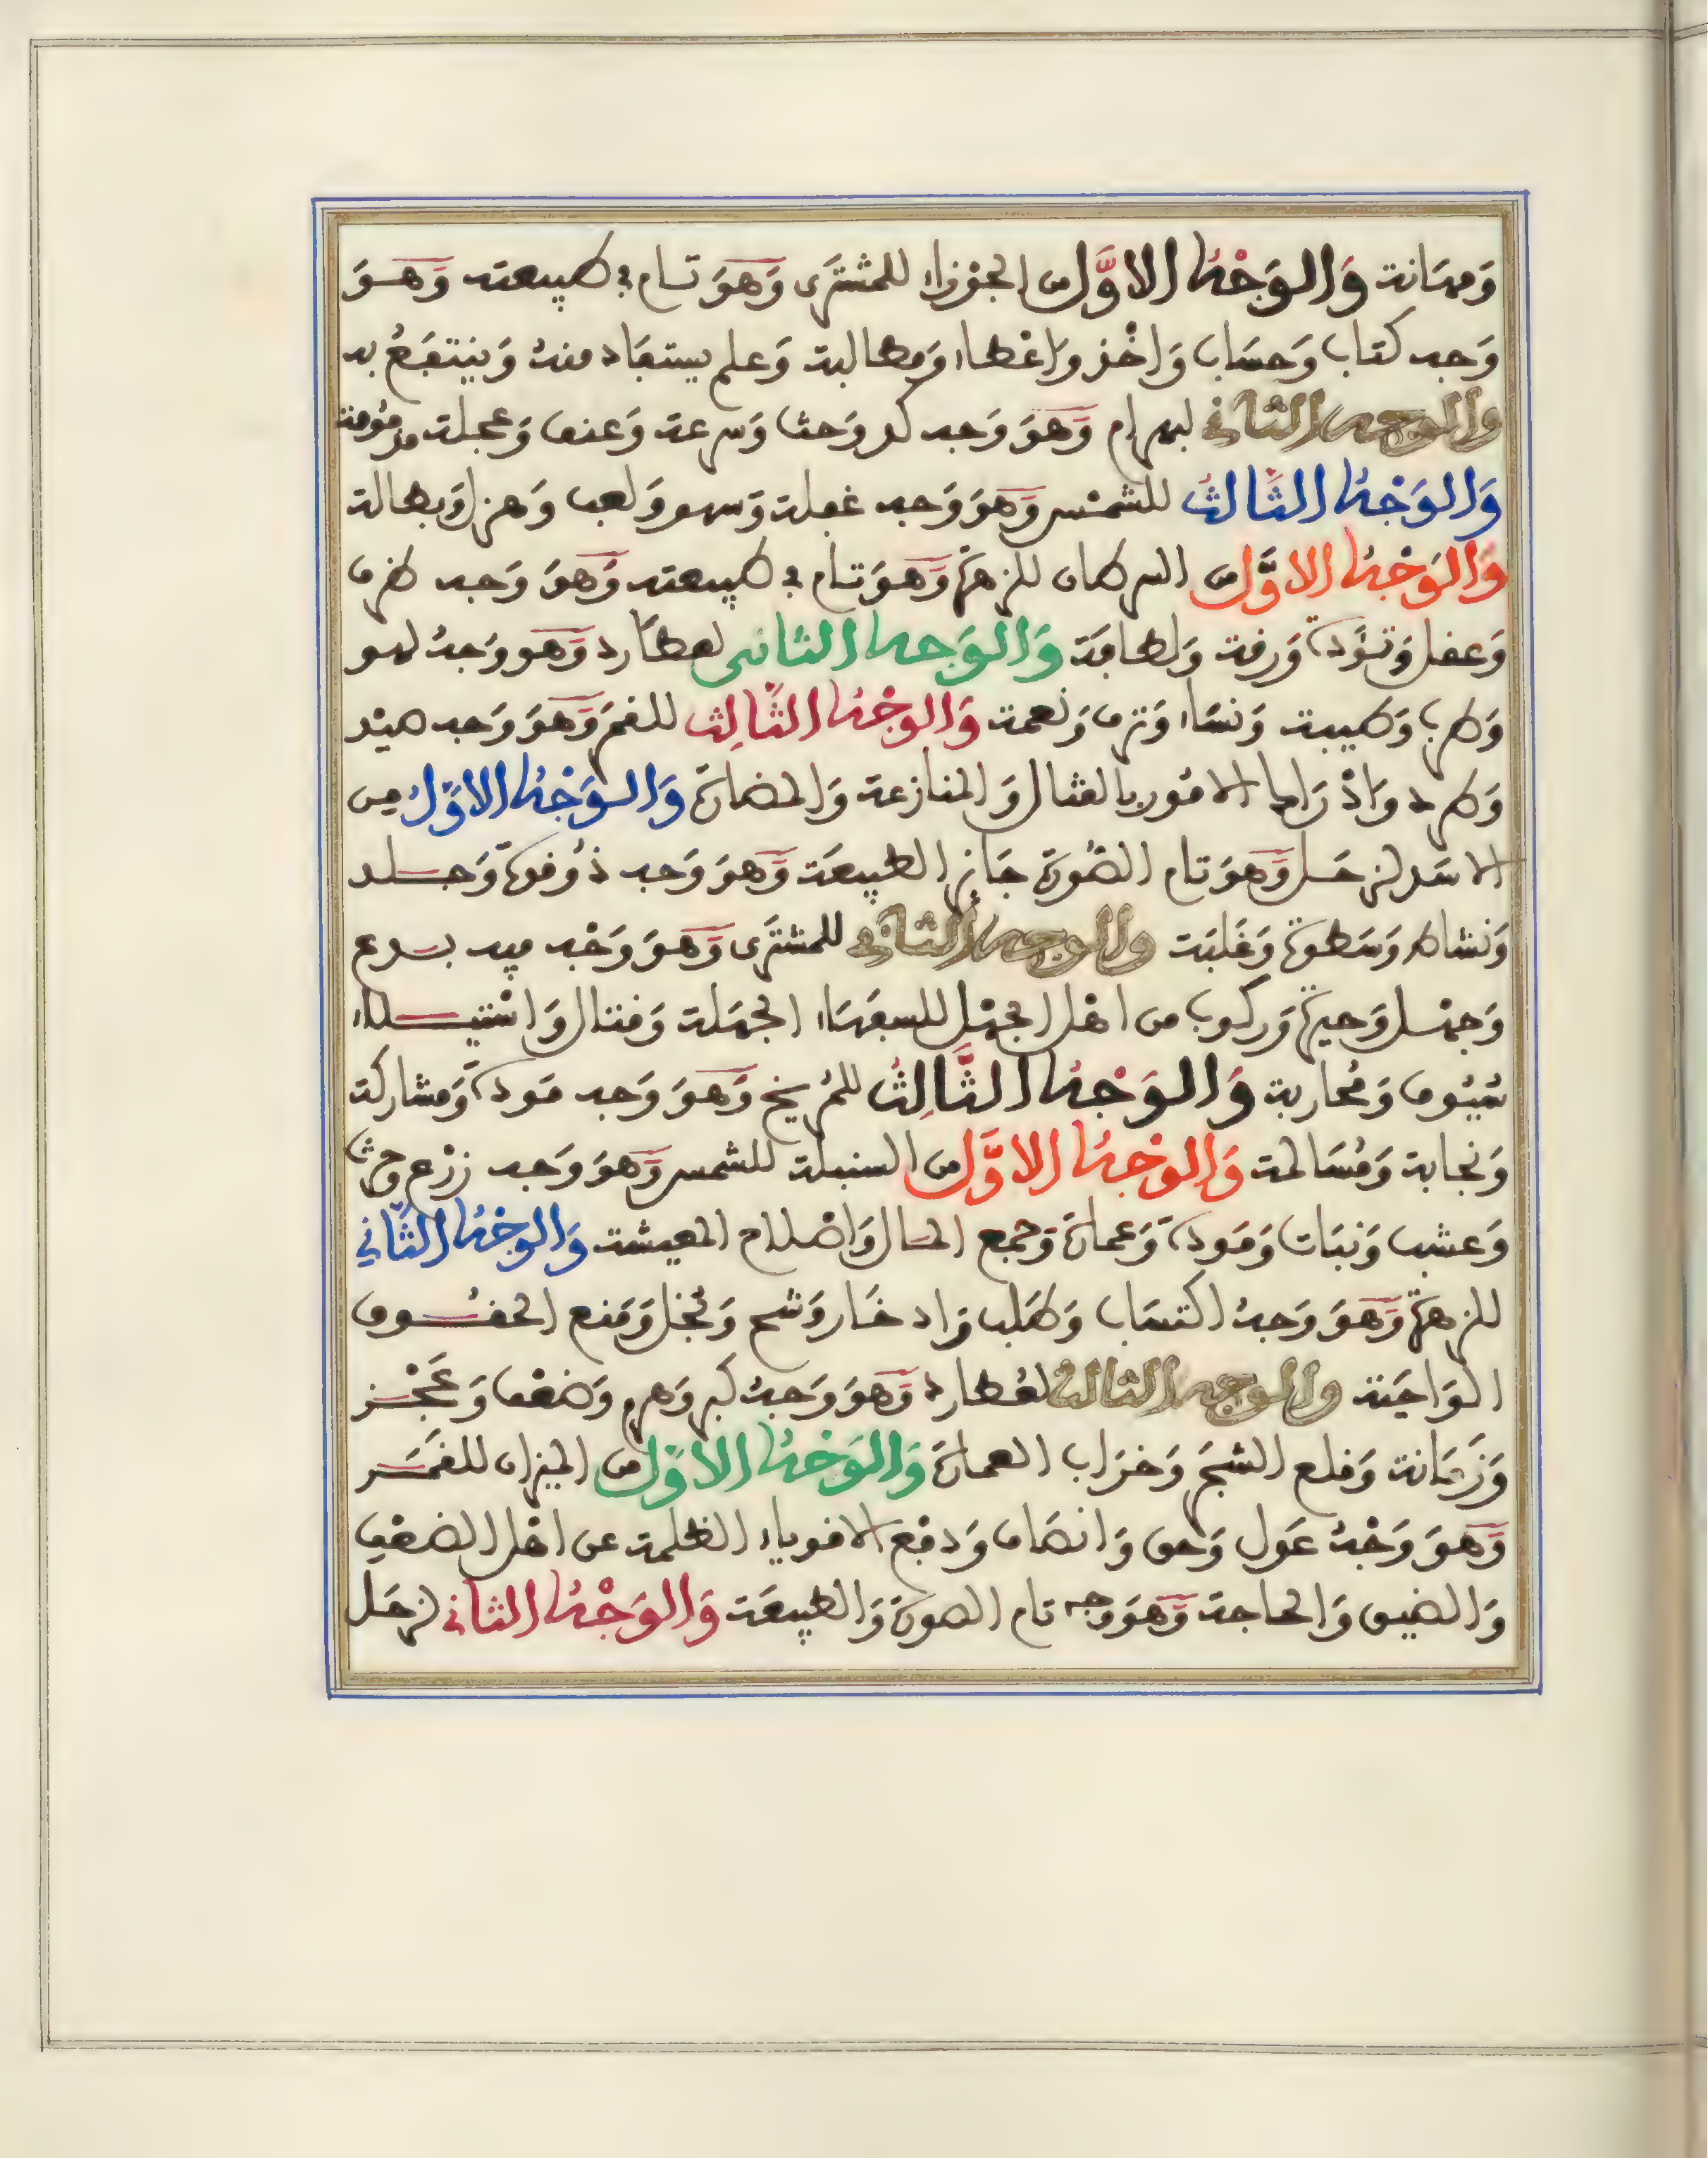 وَمهَانة وَالوَجْهُ الاوَّل من الجوْزاء للمشترَى وَهوَ تام في طبيعته وَهوَ
وَجه كتاب وَحسَاب وَاخْذ وَاعْطاء وَمطالبة وَعلم يستفاد منهُ وَينتفَعُ به
والوجه الثاني لبهرام وَهوَ وَجه كد وَحث وَسرعة وَعنف وَعجلة مذمومة
وَالوَجْهُ الثَّالثُ للشمْس وَهوَ وَجه غفلة وَسهو وَلعب وَهزل وَبطالة
وَالوَجْهُ الاوَّل من السرطان للزهرَة وَهوَ تام في طبيعته وَهوَ وَجه ظرف
وَعقل وَتؤَدة وَرقة وَلطافة وَالوَجه الثانى لعطارد وَهوَ وَجهُ لهو
وَطرب وَطيبة وَنسَاء وَترف وَنعمة وَالوجْهُ الثَّالِث للقمَر وَهوَ وَجه صيْد
وَطرد وَادْرَاك الامُور بالقتال وَالمنازعة وَالمضارَة وَالوَجْهُ الاوَّلُ من
الاسَد لزحَل وَهوَ تام الصُّورَة جَار الطبيعَة وَهوَ وَجه ذو قوة وَجلد
وَنشاط وَسَطوَة وَغلبَة والوجه الثاني للمشترَى وَهوَ وَجْه فيه بدع
وَجهْل وَحيرَة وَركوب من اهْل الجهْل للسفهَاء الجهَلة وَقتال وَاسْتيلاء
سُيُوف وَمُحاربة وَالوَجْهُ الثَّالِثُ للمُريخ وَهوَ وَجه مَودة وَمشاركة
وَنجابة وَمُسَالمة وَالوجْهُ الاوَّل من السنبلة للشمس وَهوَ وَجه زرْع وحرث
وَعشب وَنبَات وَمَودة وَعمارَة وَجمع المال وَاصْلاح المعيشة وَالوجْهُ الثَّاني
للزهرَة وَهوَ وَجهُ اكتسَاب وَطلب وَادخَار وَشح وَبُخل وَمَنع الحقُوق
الوَاجبَة والوجه الثالث لعُطارد وَهوَ وَجهُ كبر وَهرم وَضعْف وَعَجْز
وَزَمَانة وَقلع الشجَر وَخرَاب العمارَة وَالوَجْهُ الاوَّل من الميزان للقمَر
وَهوَ وَجْهُ عَدل وَحق وَانصَاف وَدفع الاقوياء الظلمة عن اهْل الضعْف
وَالضيق وَالحاجة وَهوَ وجه تام الصورَة وَالطبيعَة وَالوَجْهُ الثاني لزحَل